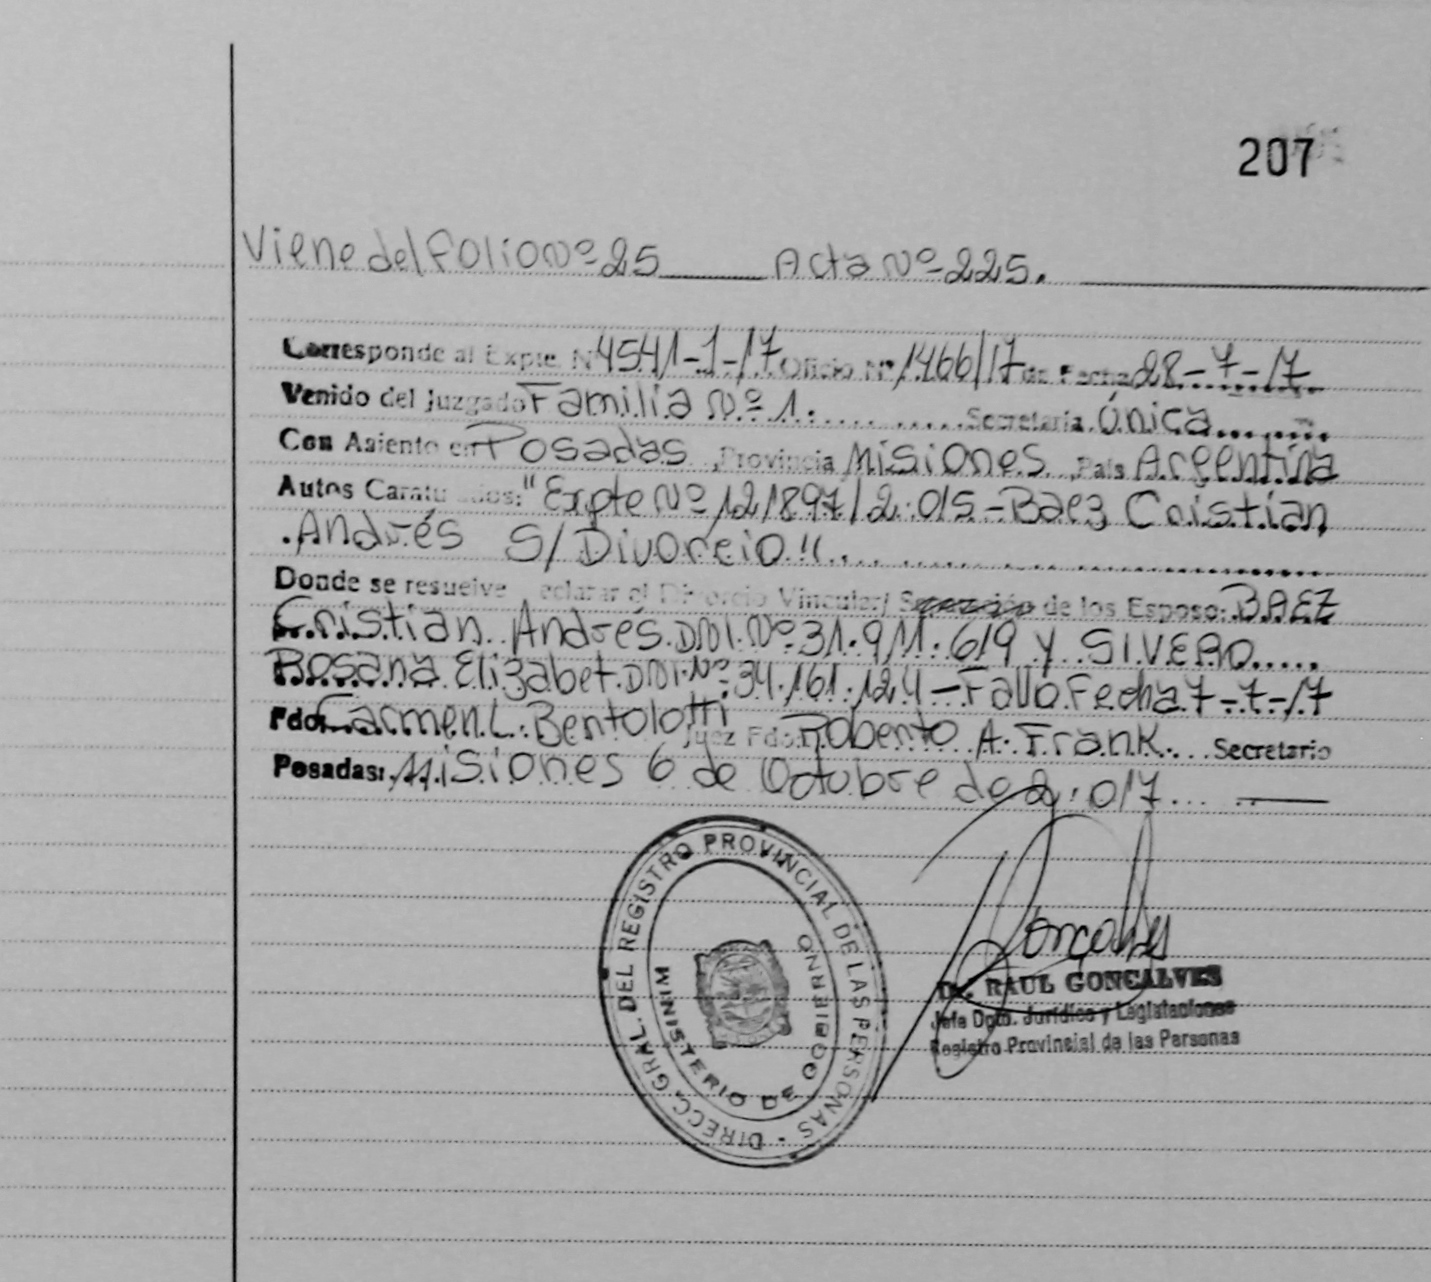 207
Viene del folio Nº 25 ____ Acta Nº 225. ____
Corresponde al Expte. Nº 4541-1-17 Oficio Nº 1466/17 de Fecha 28-7-17.
Venido del Juzgado Familia Nº 1. Secretaria Única
Con Asiento en Posadas, Provincia Misiones, Pais Argentina
Autos Caratulados: "Expte Nº 121897/2.015-Baez Cristian
Andrés S/Divorcio".
Donde se resuelve declarar el Divorcio Vincular/ de los Esposo: BAEZ
Cristian Andrés DNI.Nº 31.911.619 y SIVERO
Rosana Elizabet.DNI.Nº 34.161.124-Fallo Fecha 7-7-17
Fdo: Carmen L. Bentolotti Juez Fdo: Roberto A. Frank. Secretario
Posadas: Misiones 6 de Octubre de 2.017
DIRECC. GRAL. DEL REGISTRO PROVINCIAL DE LAS PERSONAS -
MINISTERIO DE GOBIERNO
Dr. RAUL GONCALVES
Jefe Dpto. Jurídico y Legislaciones
Registro Provincial de las Personas